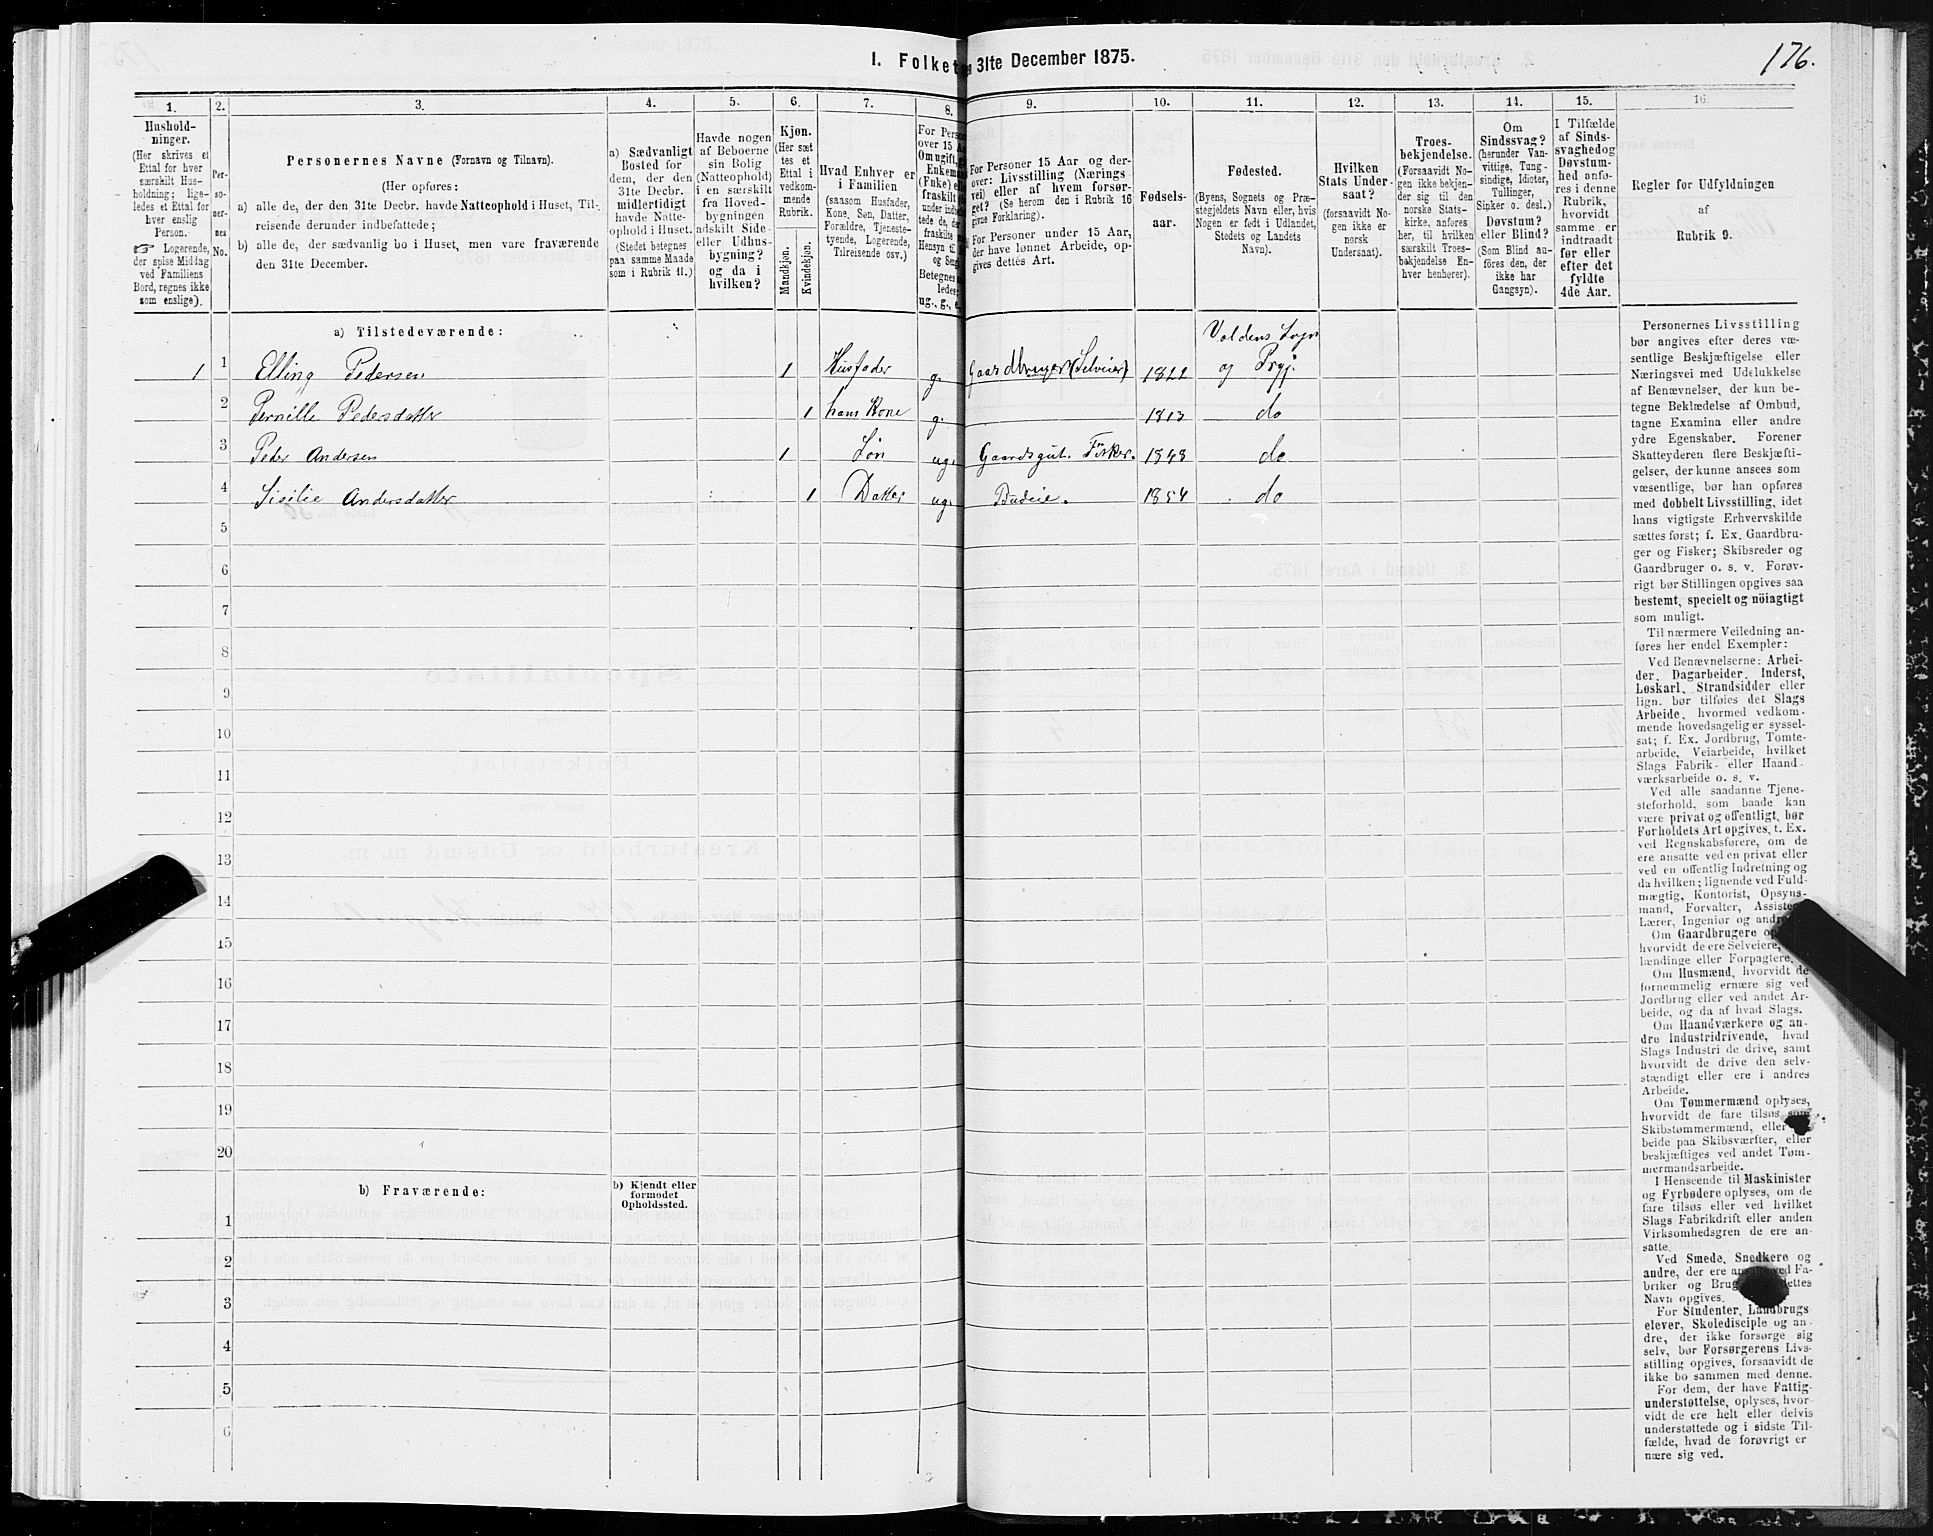 176.
I. Folket 31te December 1875.
1. 2. 3. 4. 5. 6. 7. 8. 9. 10. 11. 12. 13. 14. 15. 16.
Hushold-
ninger.
(Her skrives et
Ettal for hver
særskilt Hus-
holdning; lige-
ledes et Ettal for
hver enslig
Person.
☞ Logerende,
der spise Middag
ved Familiens
Bord, regnes ikke
som enslige).
Per-
so-
ner-
nes
No.
Personernes Navne (Fornavn og Tilnavn).
(Her opføres:
a) alle de, der den 31te Decbr. havde Natteophold i Huset, Til-
reisende derunder indbefattede;
b) alle de, der sædvanlig bo i Huset, men vare fraværende
den 31te December.
a) Sædvanligt
Bosted for
dem, der den
31te Decbr.
midlertidigt
havde Natte-
ophold i Huset.
(Stedet betegnes
paa samme Maade
som i Rubrik 11.)
Havde nogen
af Beboerne
sin Bolig
(Natteophold)
i en særskilt
fra Hoved-
bygningen
adskilt Side-
eller Udhus-
bygning?
og da i
hvilken?
Kjøn.
(Her sæt
tes et
Ettal i
vedkom-
mende
Rubrik.
Mandkjøn.
Kvindekjøn.
Hvad Enhver er
i Familien
(saasom Husfader,
Kone, Søn, Datter,
Forældre, Tjeneste-
tyende, Logerende,
Tilreisende osv.)
For Perso
over 15 A
Om ugift, g
Enkema
(Enke) el
fraskilt
under ind
tede de,
fraskilte
Hensyn til
og Seng
Betegnes
ledes:
ug., g., e
For Personer 15 Aar og der-
over: Livsstilling (Nærings-
vei) eller af hvem forsør-
get? (Se herom den i Rubrik 16
givne Forklaring).
For Personer under 15 Aar,
der have lønnet Arbeide, op-
gives dettes Art.
Fødsels-
aar.
Fødested.
(Byens, Sognets og Præ-
stegjeldets Navn eller, hvis
Nogen er født i Udlandet,
Stedets og Landets
Navn).
Hvilken
Stats Under-
saat?
(forsaavidt No-
gen ikke er
norsk
Undersaat).
Troes-
bekjendelse.
(Forsaavidt No-
gen ikke bekjen-
der sig til den
norske Stats-
kirke, anføres
her, til hvilken
særskilt Troes-
bekjendelse En-
hver henhører).
Om
Sindssvag?
(herunder Van-
vittige, Tung-
sindige, Idioter,
Tullinger,
Sinker o. desl.)
Døvstum?
eller Blind?
(Som Blind an-
føres den, der
ikke har
Gangsyn).
I Tilfælde
af Sinds-
svaghed og
Døvstum-
hed anfø-
res i denne
Rubrik,
hvorvidt
samme er
indtraadt
før eller
efter det
fyldte
4de Aar.
Regler for Udfyldningen
af
Rubrik 9.
a) Tilstedeværende:
Voldens Sogn
1 1 Elling Pedersen 1 Husfader g. Gaardbruger (Selveier) 1822 og Prgj.
2 Pernille Pedersdatter 1 hans Kone g. 1813 do
3 Peder Andersen 1 Søn ug. Gaardsgut. Fisker. 1848 do
4 Sisilie Andersdatter 1 Datter ug. Budeie. 1854 do
5
6
7
8
9
10
11
12
13
14
15
16
17
18
19
20
b) Fraværende:
b) Kjendt eller
formodet
Opholdssted.
1
2
3
4
5
6
Personernes Livsstilling
bør angives efter deres væ-
sentlige Beskjæftigelse eller
Næringsvei med Udelukkelse
af Benævnelser, der kun be-
tegne Beklædelse af Ombud,
tagne Examina eller andre
ydre Egenskaber. Forener
Skatteyderen flere Beskjæfti-
gelser, der kunne ansees som
væsentlige, bør han opføres
med dobbelt Livsstilling, idet
hans vigtigste Erhvervskilde
sættes først; f. Ex. Gaardbru-
ger og Fisker; Skibsreder og
Gaardbruger o. s. v. Forøv-
rigt bør Stillingen opgives saa
bestemt, specielt og nöiagtigt
som muligt.
Til nærmere Veiledning an-
føres her endel Exempler:
Ved Benævnelserne: Arbei-
der, Dagarbeider, Inderst,
Løskarl, Strandsidder eller
lign. bør tilføies det Slags
Arbeide, hvormed vedkom-
mende hovedsagelig er syssel-
sat; f. Ex. Jordbrug, Tomte-
arbeide, Veiarbeide, hvilket
Slags Fabrik- eller Haand-
værksarbeide o. s. v.
Ved alle saadanne Tjene-
steforhold, som baade kan
være privat og offentligt, bør
Forholdets Art opgives, t. Ex.
ved Regnskabsførere, om de
ere ansatte ved en privat eller
ved en offentlig Indretning og
da hvilken; lignende ved Fuld-
mægtig, Kontorist, Opsyns-
mand, Forvalter, Assistent,
Lærer, Ingeniør og andre
Om Gaardbrugere
hvorvidt de ere Selveiere,
lændinge eller Forpagtere.
Om Husmænd, hvorvidt de
fornemmelig ernære sig ved
Jordbrug eller ved andet Ar-
beide, og da af hvad Slags.
Om Haandværkere og an-
dre Industridrivende, hvad
Slags Industri de drive, samt
hvorvidt de drive den selv-
stændigt eller ere i andres
Arbeide.
Om Tømmermænd oplyses,
hvorvidt de fare tilsøs som
Skibstømmermænd, eller
beide paa Skibsværfter, eller
beskjæftiges ved andet Tøm-
mermandsarbeide.
I Henseende til Maskinister
og Fyrbødere oplyses, om de
fare tilsøs eller ved hvilket
Slags Fabrikdrift eller anden
Virksomhedsgren de ere an-
satte.
Ved Smede, Snedkere og
andre, der ere ansatte ved Fa-
briker og Brug dettes
Navn opgives.
For Studenter, Landbrugs-
elever, Skoledisciple og an-
dre, der ikke forsørge sig
selv, bør Forsørgerens Livs-
stilling opgives, forsaavidt de
ikke bo sammen med denne.
For dem, der have Fattig-
understøttelse, oplyses, hvor-
vidt de ere helt eller delvis
understøttede og i sidste Til-
fælde, hvad de forøvrigt er
nære sig ved.